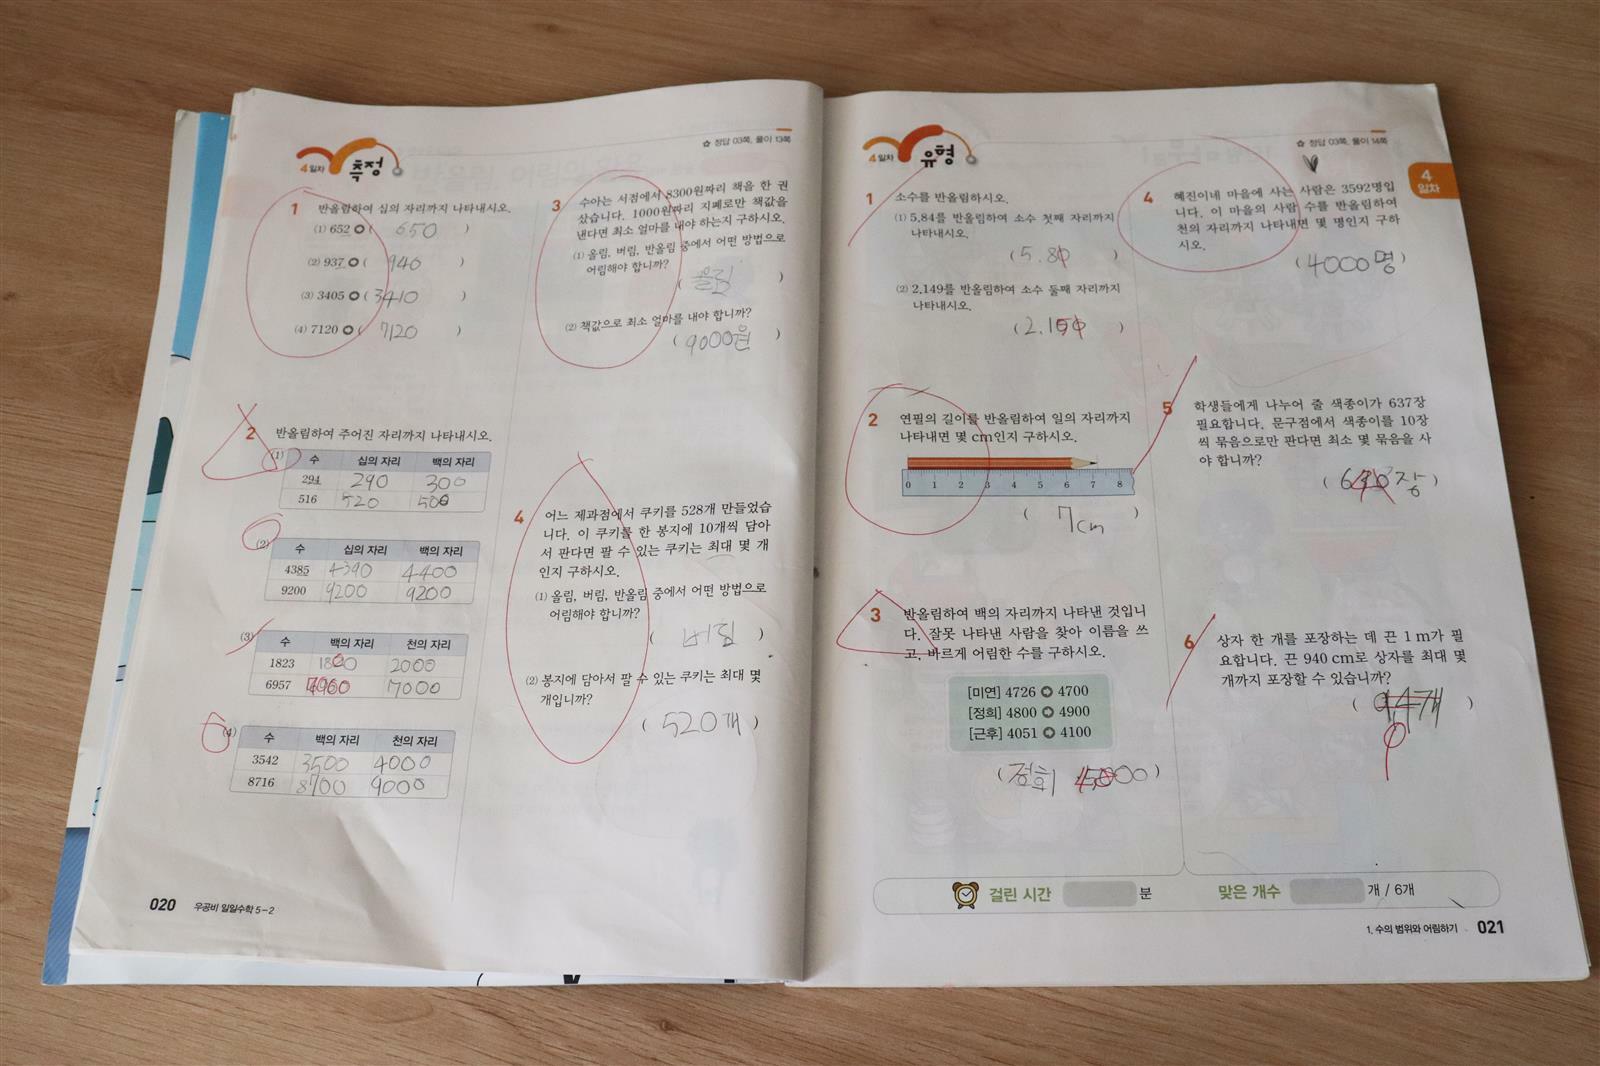 4일차 측정
☆ 정답 03쪽, 풀이 13쪽
1 반올림하여 십의 자리까지 나타내시오.
(1) 652 ➡ ( 650 )
(2) 937 ➡ ( 940 )
(3) 3405 ➡ ( 3410 )
(4) 7120 ➡ ( 7120 )
2 반올림하여 주어진 자리까지 나타내시오.
(1) 수 십의 자리 백의 자리
294 290 300
516 520 500
(2) 수 십의 자리 백의 자리
4385 4390 4400
9200 9200 9200
(3) 수 백의 자리 천의 자리
1823 1800 2000
6957 7000
(4) 수 백의 자리 천의 자리
3542 3500 4000
8716 8700 9000
3 수아는 서점에서 8300원짜리 책을 한 권
샀습니다. 1000원짜리 지폐로만 책값을
낸다면 최소 얼마를 내야 하는지 구하시오.
(1) 올림, 버림, 반올림 중에서 어떤 방법으로
어림해야 합니까?
( 올림 )
(2) 책값으로 최소 얼마를 내야 합니까?
( 9000원 )
4 어느 제과점에서 쿠키를 528개 만들었습
니다. 이 쿠키를 한 봉지에 10개씩 담아
서 판다면 팔 수 있는 쿠키는 최대 몇 개
인지 구하시오.
(1) 올림, 버림, 반올림 중에서 어떤 방법으로
어림해야 합니까?
( 버림 )
(2) 봉지에 담아서 팔 수 있는 쿠키는 최대 몇
개입니까?
( 520개 )
020 우공비 일일수학 5-2
4일차 유형
☆ 정답 03쪽, 풀이 14쪽
4
일차
1 소수를 반올림하시오.
(1) 5.84를 반올림하여 소수 첫째 자리까지
나타내시오.
( 5.80 )
(2) 2.149를 반올림하여 소수 둘째 자리까지
나타내시오.
( 2.150 )
2 연필의 길이를 반올림하여 일의 자리까지
나타내면 몇 cm인지 구하시오.
0 1 2 3 4 5 6 7 8
( 7cm )
3 반올림하여 백의 자리까지 나타낸 것입니
다. 잘못 나타낸 사람을 찾아 이름을 쓰
고, 바르게 어림한 수를 구하시오.
[미연] 4726 ➡ 4700
[정희] 4800 ➡ 4900
[근후] 4051 ➡ 4100
( 정희 )
4 혜진이네 마을에 사는 사람은 3592명입
니다. 이 마을의 사람 수를 반올림하여
천의 자리까지 나타내면 몇 명인지 구하
시오.
( 4000명 )
5 학생들에게 나누어 줄 색종이가 637장
필요합니다. 문구점에서 색종이를 10장
씩 묶음으로만 판다면 최소 몇 묶음을 사
야 합니까?
6 상자 한 개를 포장하는 데 끈 1 m가 필
요합니다. 끈 940 cm로 상자를 최대 몇
개까지 포장할 수 있습니까?
( 9.4개 )
걸린 시간 분 맞은 개수 개 / 6개
1. 수의 범위와 어림하기 021